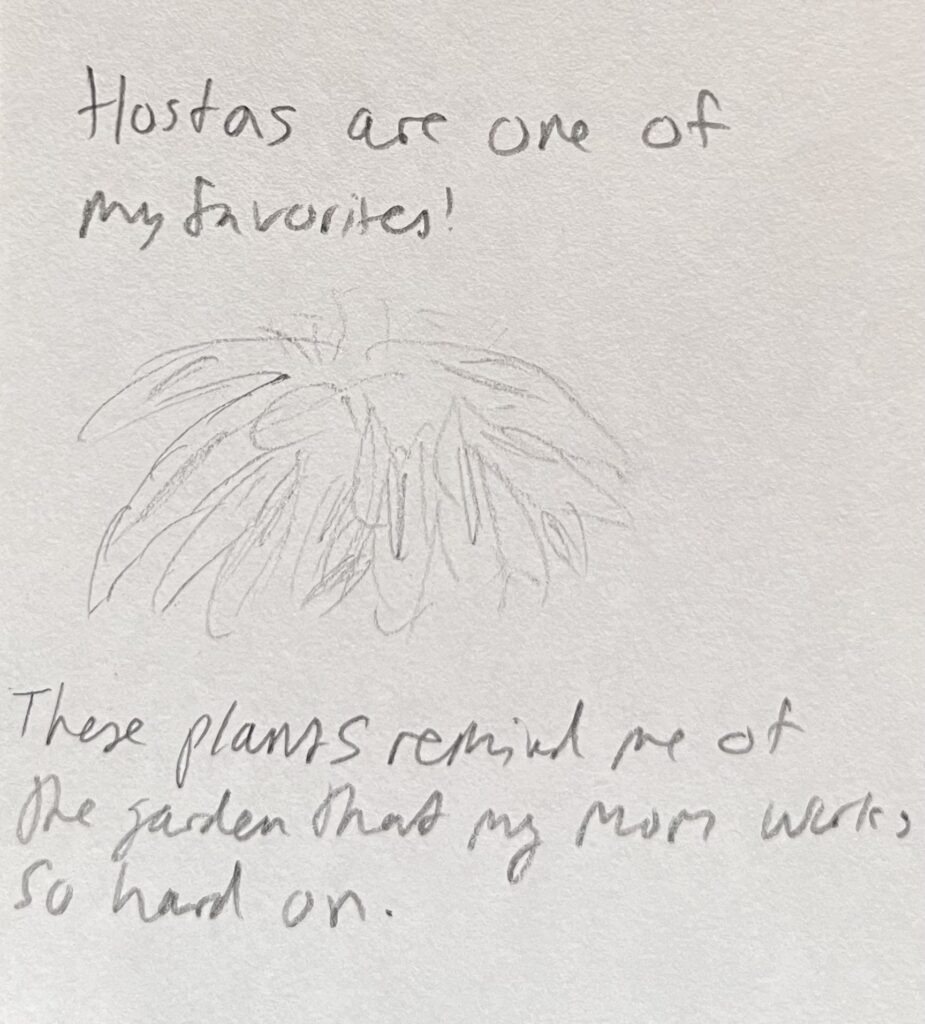 Hostas are one of
my favorites!
These plants remind me of
the garden that my mom works
so hard on.